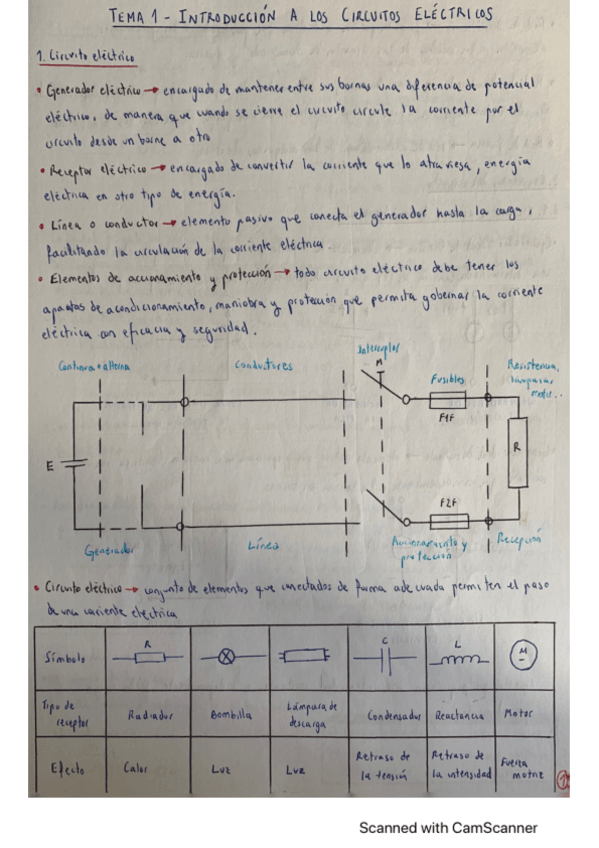 TEMA 1 - INTRODUCCIÓN A LOS CIRCUITOS ELÉCTRICOS
1. Circuito eléctrico
• Generador eléctrico → encargado de mantener entre sus bornas una diferencia de potencial
eléctrico, de manera que cuando se cierre el circuito circule la corriente por el
circuito desde un borne a otro
• Receptor eléctrico → encargado de convertir la corriente que lo atraviesa, energía
eléctrica en otro tipo de energía.
• Línea o conductor → elemento pasivo que conecta el generador hasta la carga,
facilitando la circulación de la corriente eléctrica.
• Elementos de accionamiento y protección → todo circuito eléctrico debe tener los
aparatos de acondicionamiento, maniobra y protección que permita gobernar la corriente
eléctrica con eficacia y seguridad.
Continua o alterna
Conductores
Interruptor
M
Fusibles
Resistencia,
lámparas
motor..
F1F
E
R
F2F
Generador
Línea
Accionamiento y
protección
Recepción
• Circuito eléctrico → conjunto de elementos que conectados de forma adecuada permiten el paso
de una corriente eléctrica
Símbolo R C L M
Tipo de receptor Radiador Bombilla Lámpara de descarga Condensador Reactancia Motor
Efecto Calor Luz Luz Retraso de la tensión Retraso de la intensidad Fuerza motriz
1
Scanned with CamScanner